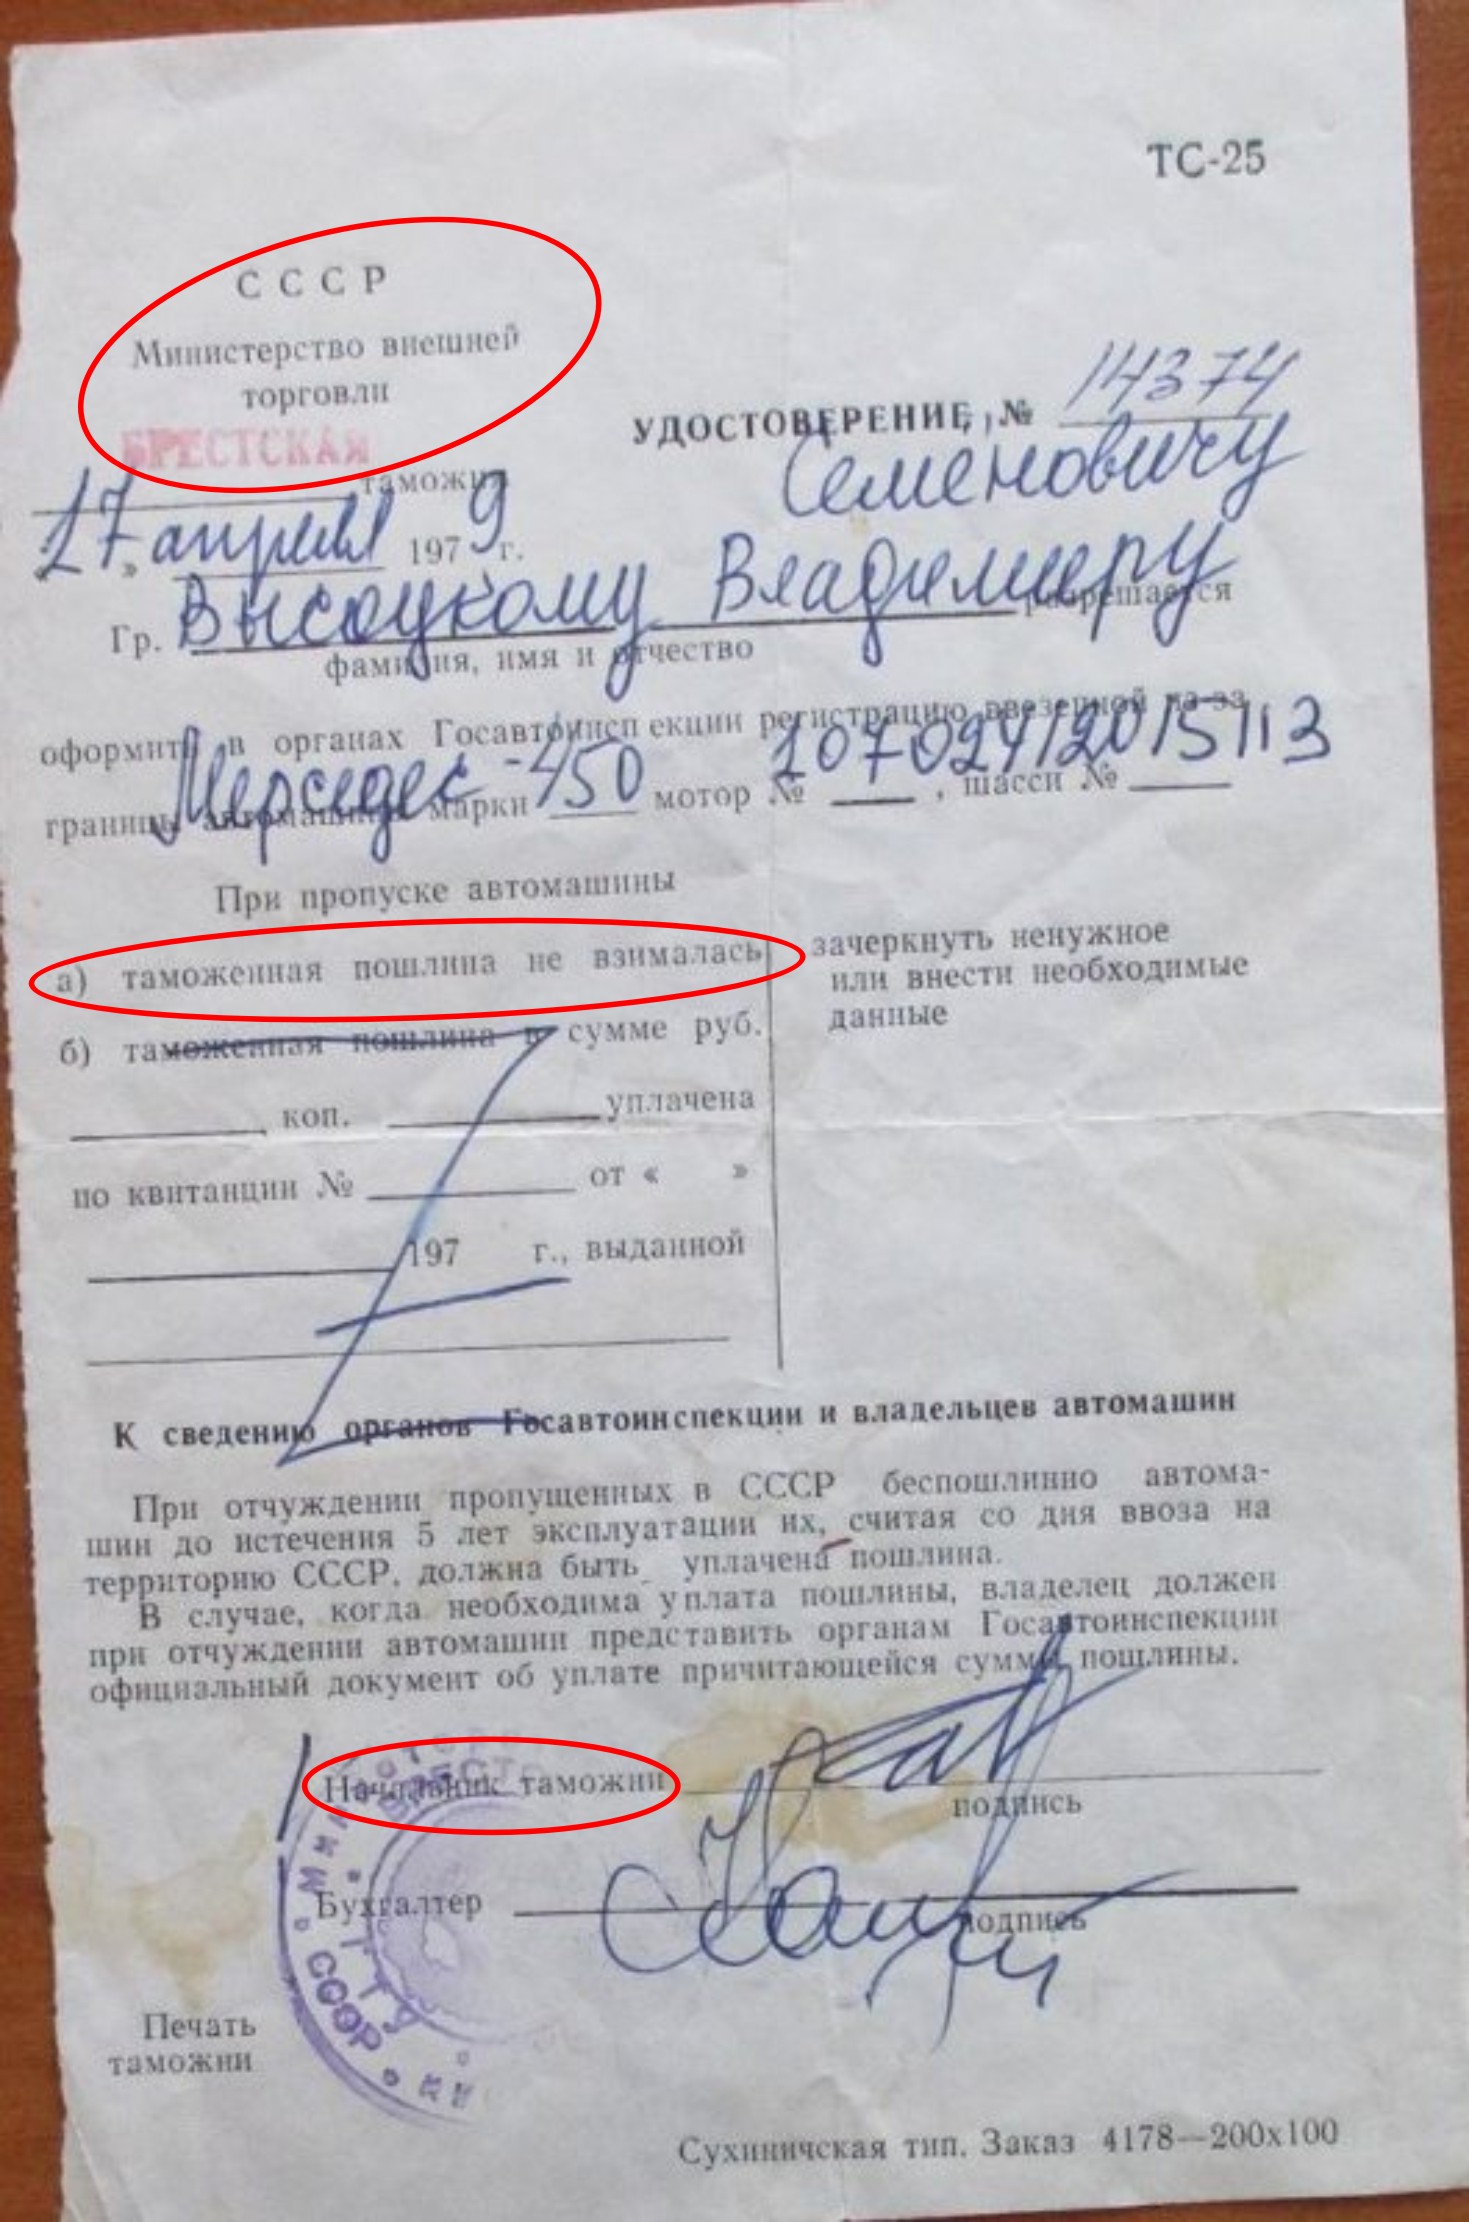 ТС-25
СССР
Министерство внешней
торговли
БРЕСТСКАЯ
таможня
УДОСТОВЕРЕНИЕ, № 14374
Семеновичу
17 » апреля 1979 г.
Гр. Высоцкому Владимиру разрешается
фамилия, имя и отчество
оформить в органах Госавтоинспекции регистрацию ввезенной из-за
Мерседес-450 10702412015113
границы автомашины марки мотор № , шасси №
При пропуске автомашины
а) таможенная пошлина не взималась
зачеркнуть ненужное
или внести необходимые
данные
б) таможенная пошлина в сумме руб.
коп. уплачена
по квитанции № от « »
197 г., выданной
К сведению органов Госавтоинспекции и владельцев автомашин
При отчуждении пропущенных в СССР беспошлинно автома-
шин до истечения 5 лет эксплуатации их, считая со дня ввоза на
территорию СССР, должна быть уплачена пошлина.
В случае, когда необходима уплата пошлины, владелец должен
при отчуждении автомашин представить органам Госавтоинспекции
официальный документ об уплате причитающейся суммы пошлины.
Начальник таможни
подпись
Бухгалтер
подпись
СССР
Печать
таможни
Сухиничская тип. Заказ 4178—200х100